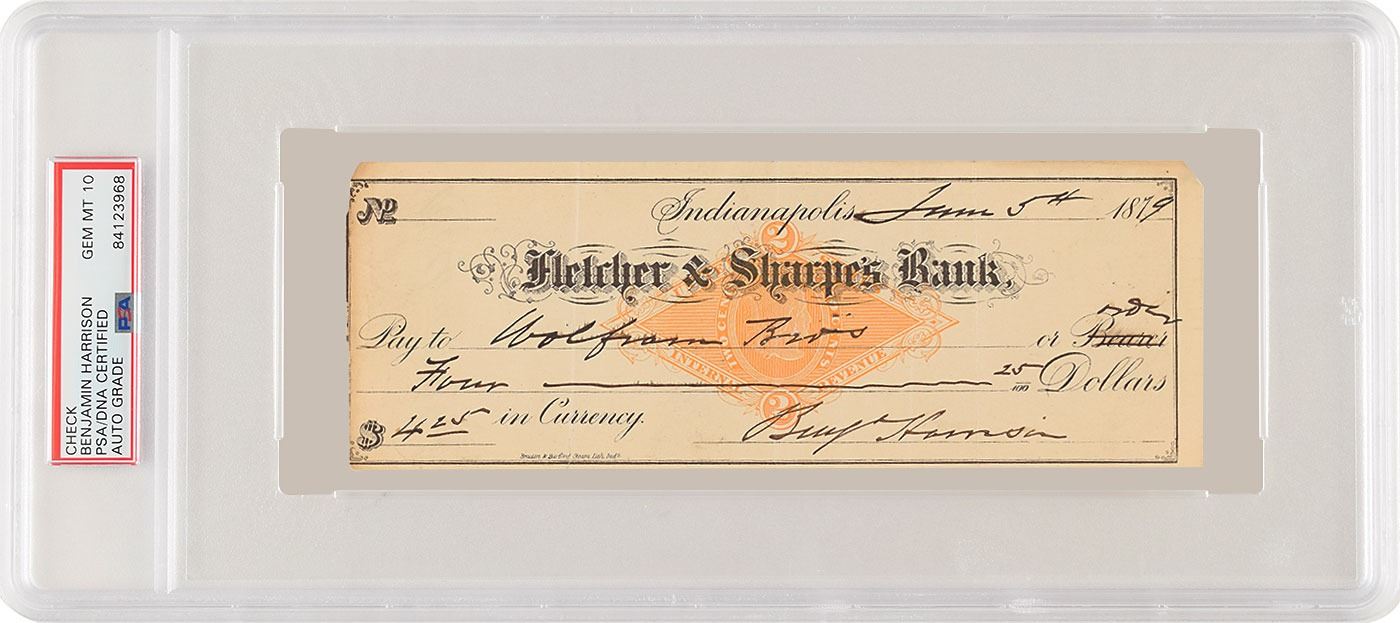 CHECK GEM MT 10
BENJAMIN HARRISON
PSA/DNA CERTIFIED PSA
AUTO GRADE 84123968
No
Indianapolis June 5th 1879
2
Fletcher & Sharpe's Bank,
Pay to Wolfram Bro's or Bearer order
INTERNAL REVENUE
Four 25/100 Dollars
$ 4 25 in Currency.
2
Benj Harrison